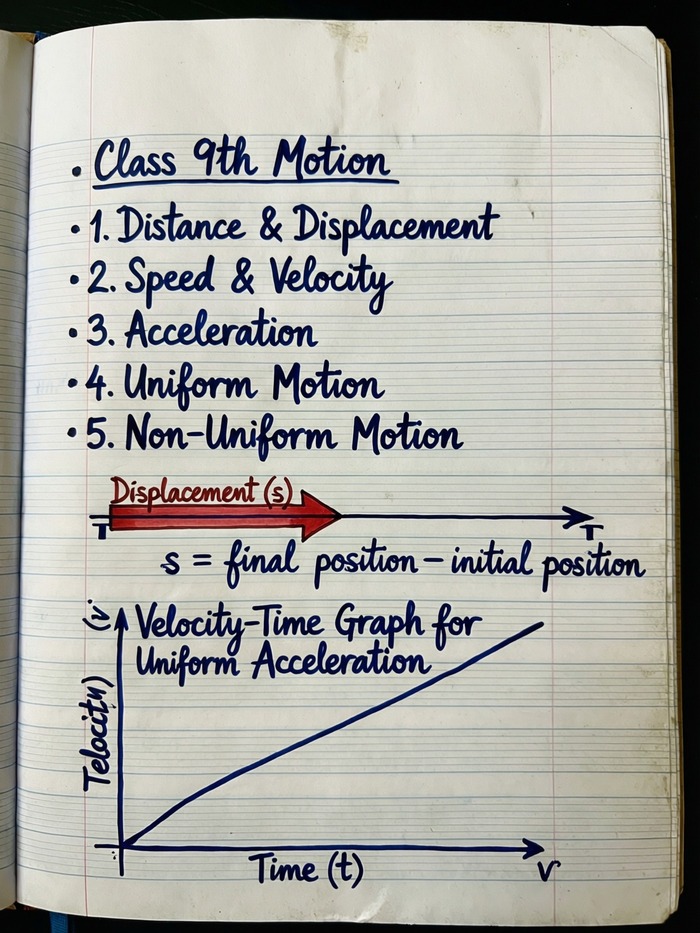 • Class 9th Motion
• 1. Distance & Displacement
• 2. Speed & Velocity
• 3. Acceleration
• 4. Uniform Motion
• 5. Non-Uniform Motion
Displacement (s)
T T
s = final position – initial position
(v
Velocity-Time Graph for
Uniform Acceleration
Telocity)
Time (t)
V